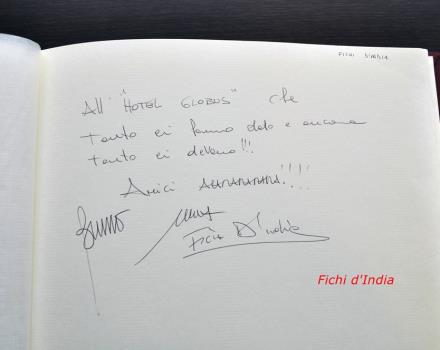 FICHI D'INDIA
All' "HOTEL GLOBUS" che
tanto ci hanno dato e ancora
tanto ci devono!!!
Amici AHARARARARA!!!!
Bruno
Max
Fichi D'India
Fichi d'India